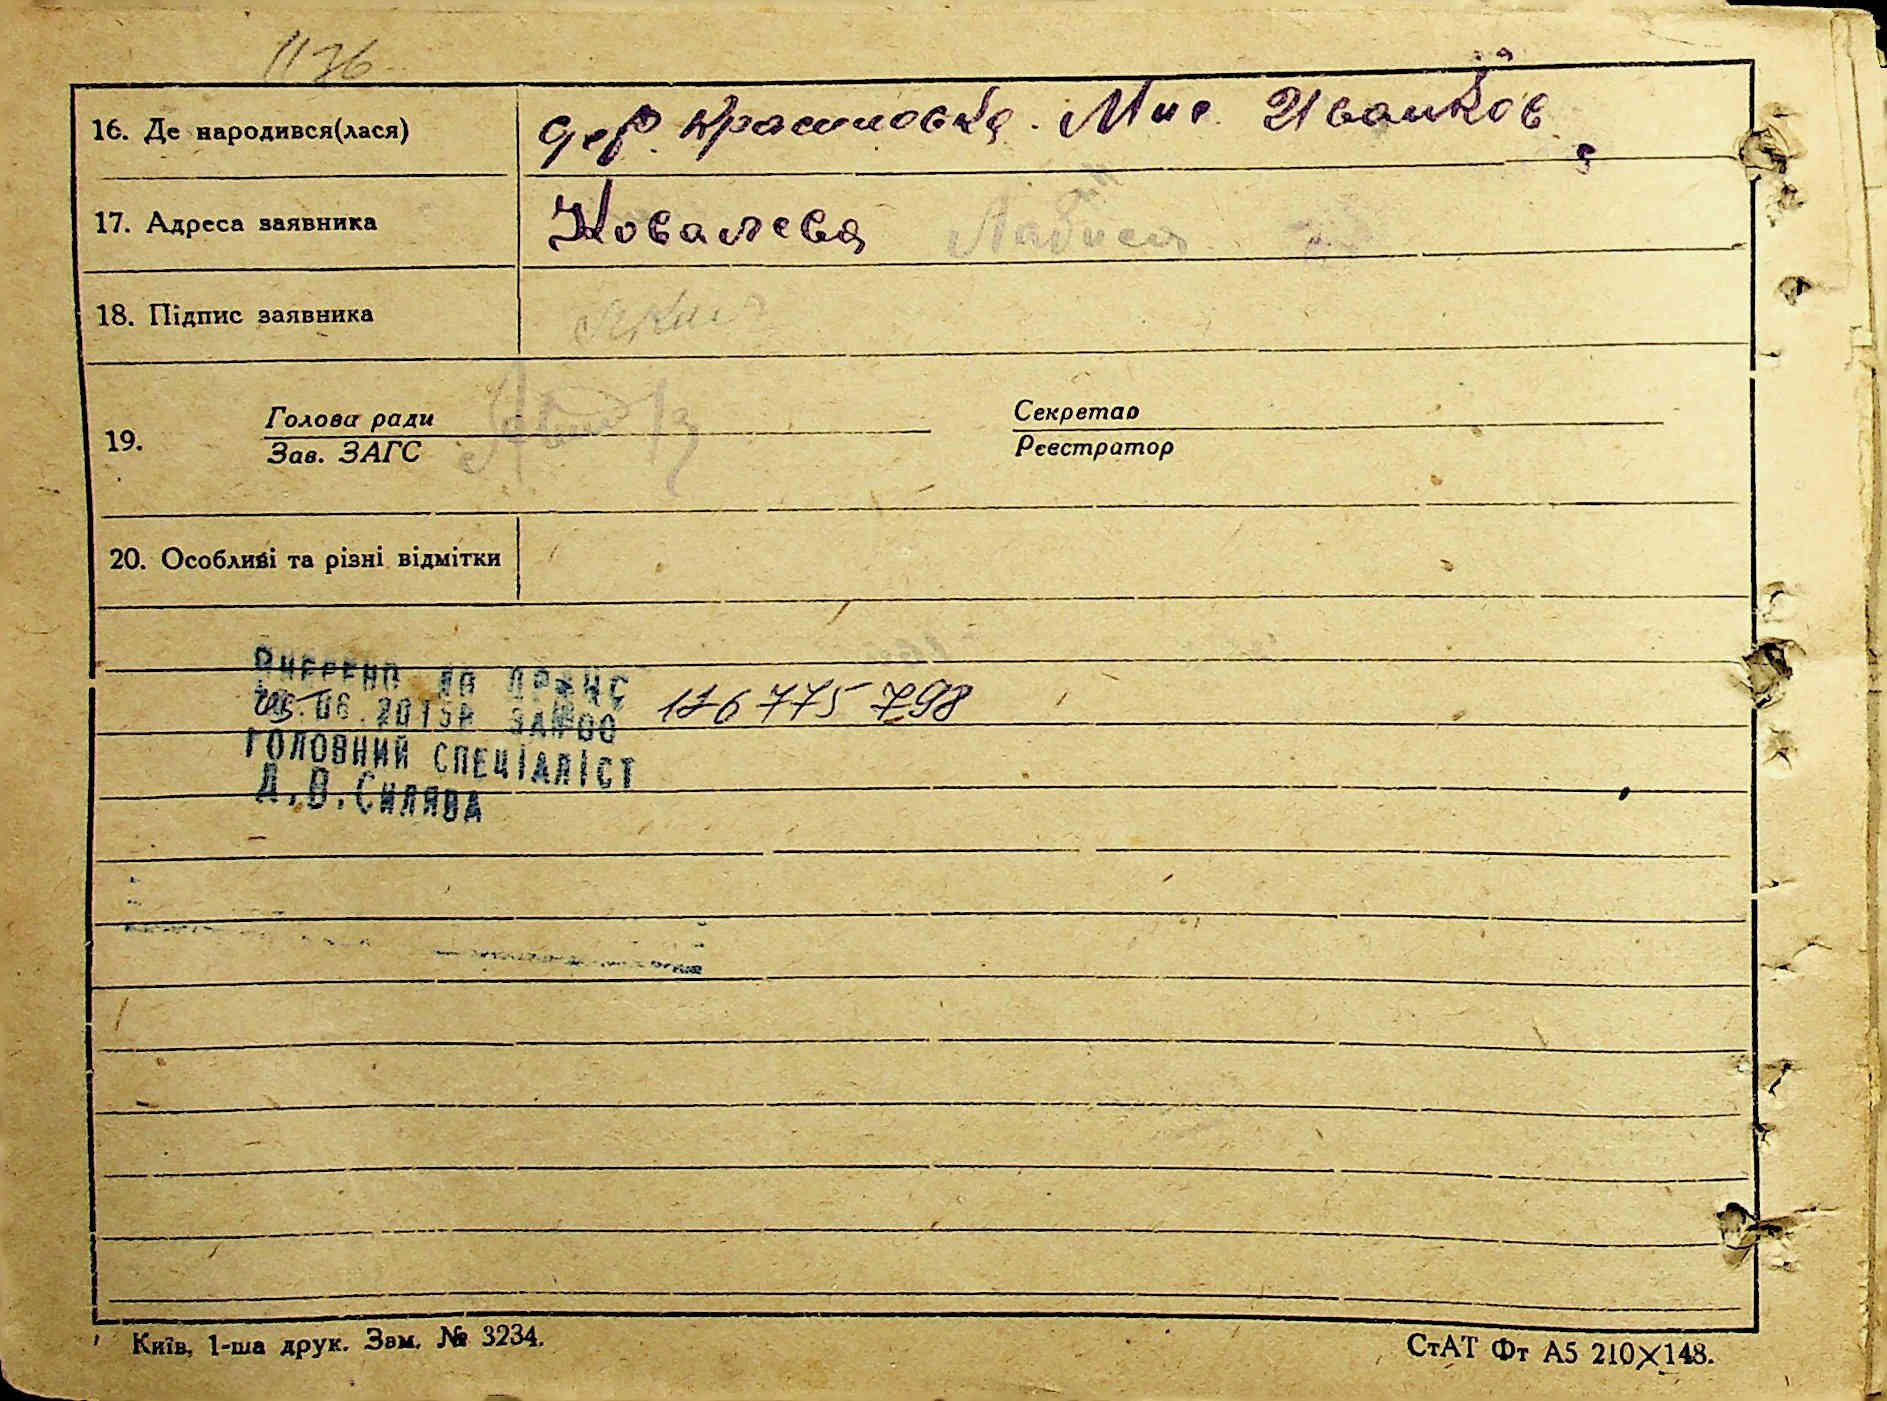 1136
16. Де народився(лася) дер. Крашновка. Мис. Иванков
17. Адреса заявника Ковалева
18. Підпис заявника
Голова ради Секретар
19.
Зав. ЗАГС Реєстратор
20. Особливі та різні відмітки
ВНЕСЕНО ДО ДРАЦС
05.06.2015Р ЗА №00 176 775 798
ГОЛОВНИЙ СПЕЦІАЛІСТ
Д.В.СИЛЯВА
Київ, 1-ша друк. Зам. № 3234. СтАТ Фт А5 210×148.